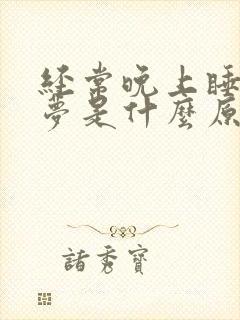 經常晚上睡
夢是什麼原
諸秀寶